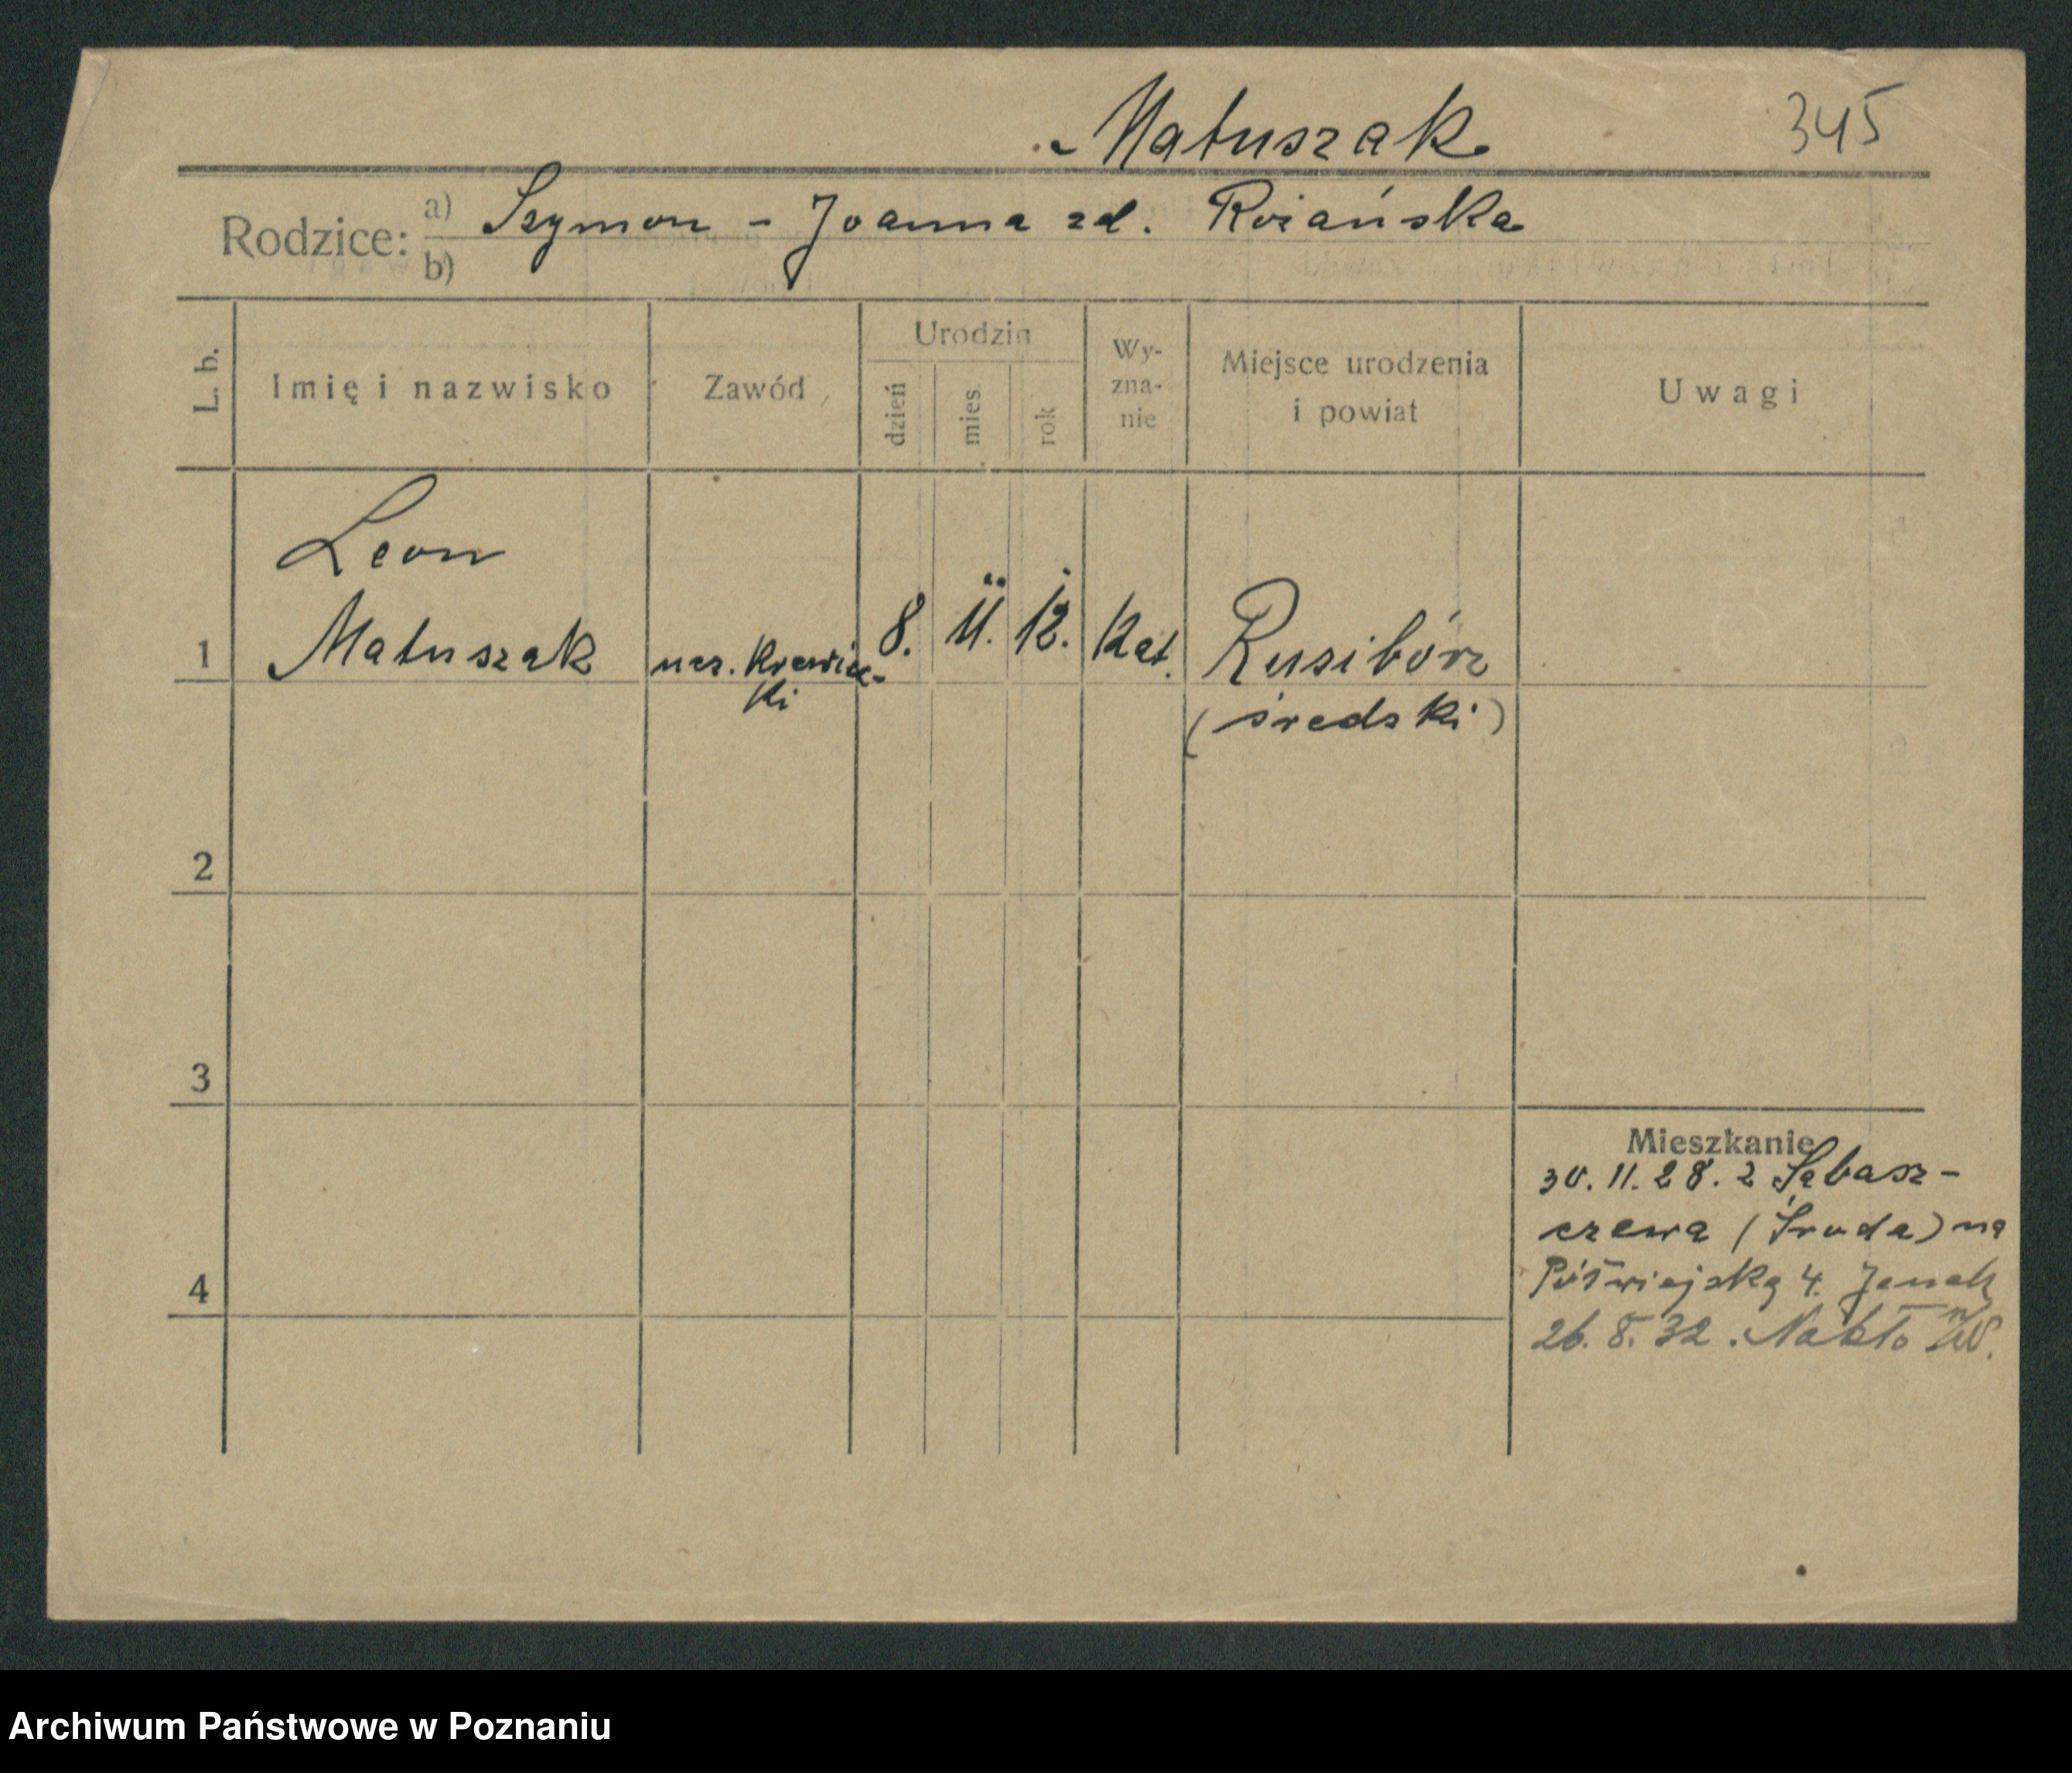 Matuszak 345
Rodzice: a) Szymon - Joanna zd. Roiańska
b)
L. b. Imię i nazwisko Zawód Urodzin dzień mies. rok Wy-zna-nie Miejsce urodzenia i powiat Uwagi
Leon
1 Matuszak ucz. krawiec- 8. 11. 12. kat. Rusibórz
ki (średski)
2
3
Mieszkanie
30.11.28. z Sabasz-
czewa (Środa) na
Półwiejską 4.
4
26.8.32. Nakło
Archiwum Państwowe w Poznaniu